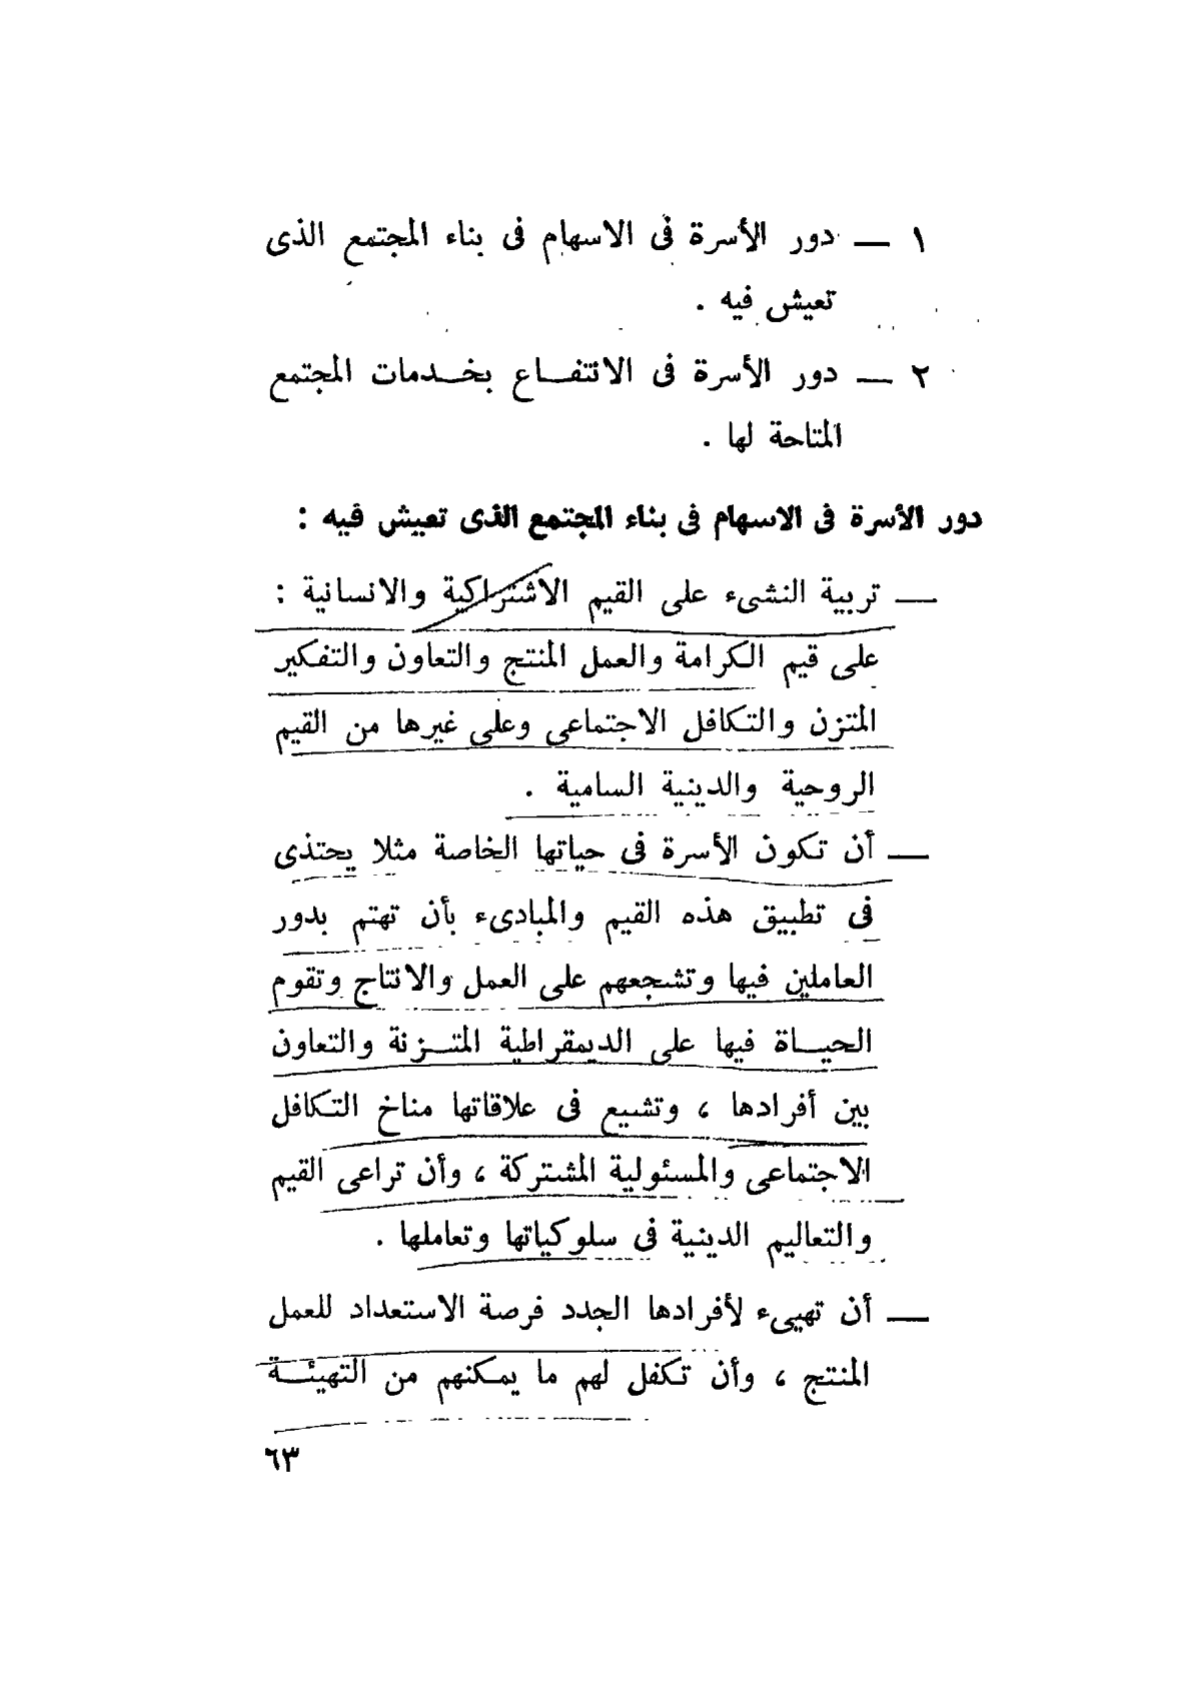 ١ — دور الأسرة فى الاسهام فى بناء المجتمع الذى
تعيش فيه .
٢ — دور الأسرة فى الانتفـاع بخـدمات المجتمع
المتاحة لها .
دور الأسرة فى الاسهام فى بناء المجتمع الذى تعيش فيه :
— تربية النشىء على القيم الاشتراكية والانسانية :
على قيم الكرامة والعمل المنتج والتعاون والتفكير
المتزن والتكافل الاجتماعى وعلى غيرها من القيم
الروحية والدينية السامية .
— أن تكون الأسرة فى حياتها الخاصة مثلا يحتذى
فى تطبيق هذه القيم والمبادىء بأن تهتم بدور
العاملين فيها وتشجعهم على العمل والانتاج وتقوم
الحيـاة فيها على الديمقراطية المتـزنة والتعاون
بين أفرادها ، وتشيع فى علاقاتها مناخ التكافل
الاجتماعى والمسئولية المشتركة ، وأن تراعى القيم
والتعاليم الدينية فى سلوكياتها وتعاملها .
— أن تهيىء لأفرادها الجدد فرصة الاستعداد للعمل
المنتج ، وأن تكفل لهم ما يمكنهم من التهيئـة
٦٣